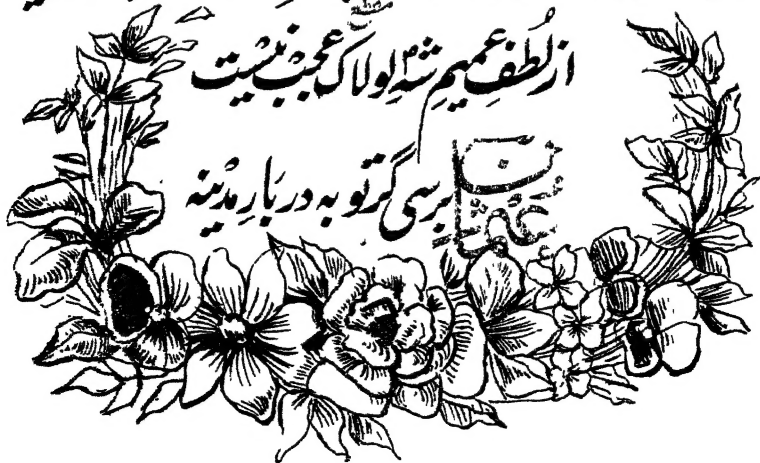 از لُطفِ عمیمِ شہِ لولاک عجب نیست
عثمان برسی گر تو بہ دربارِ مدینہ